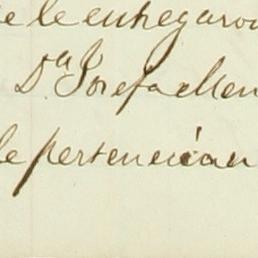 e le entregaron
D.ª Josefa Men
le pertenecian